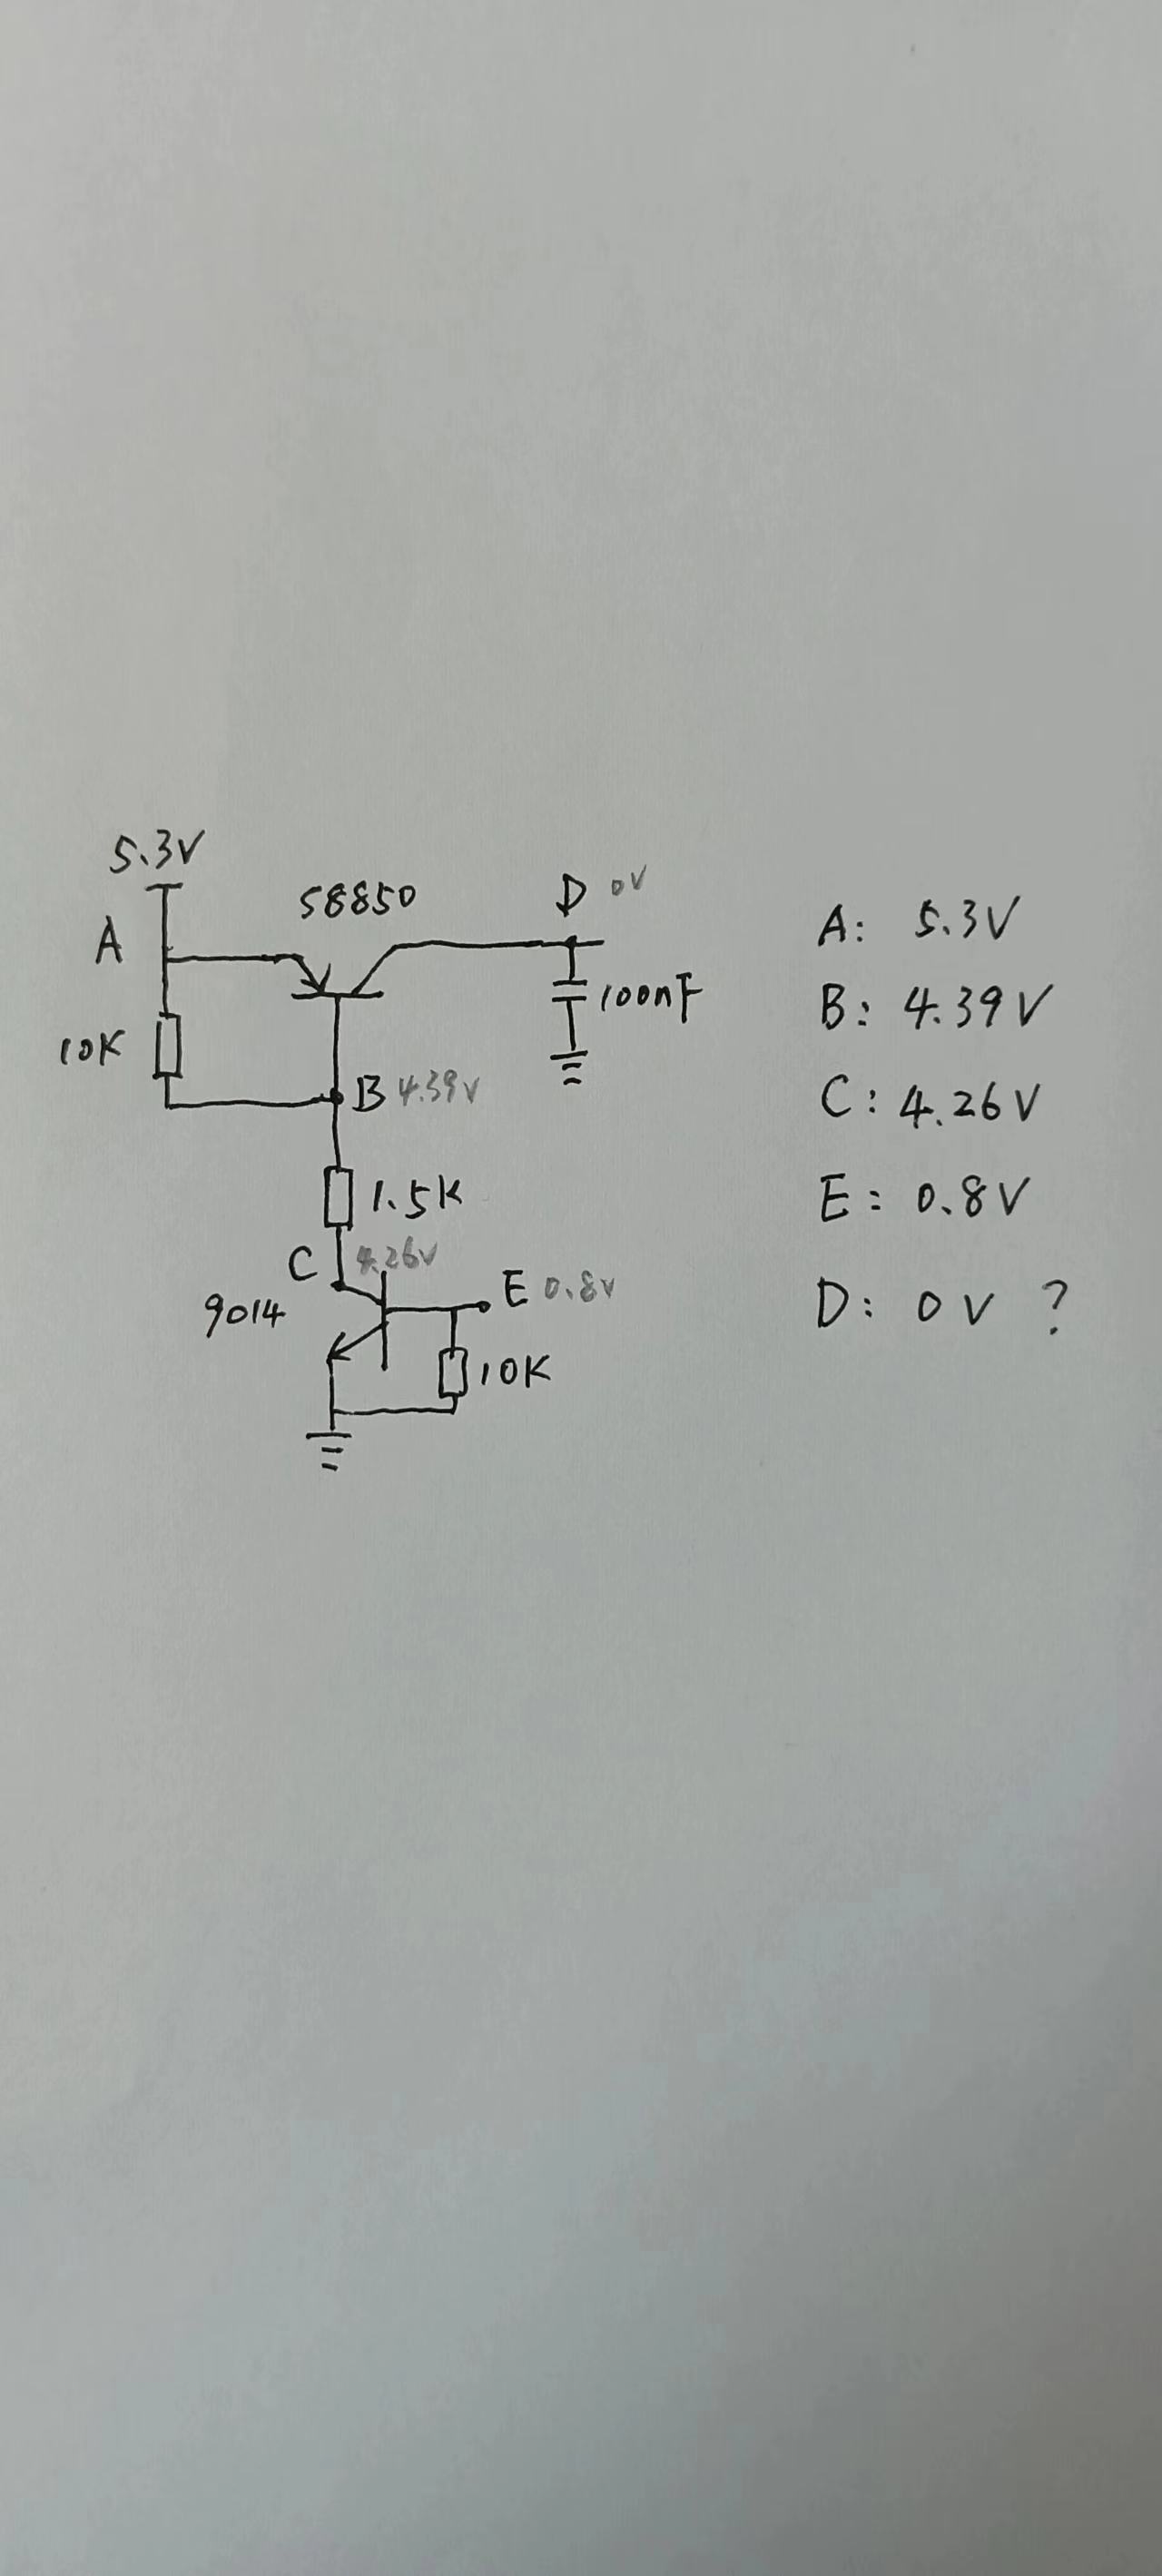 5.3V
A
S8850
D 0V
100nF
10K
B 4.39V
1.5K
C 4.26V
9014
E 0.8V
10K
A: 5.3V
B: 4.39V
C: 4.26V
E: 0.8V
D: 0V ?